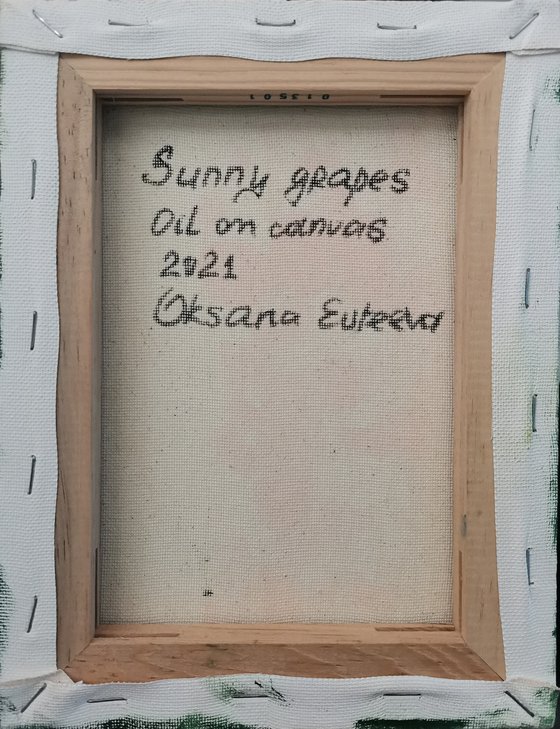 013501
Sunny grapes
Oil on canvas
2021
Oksana Evteeva